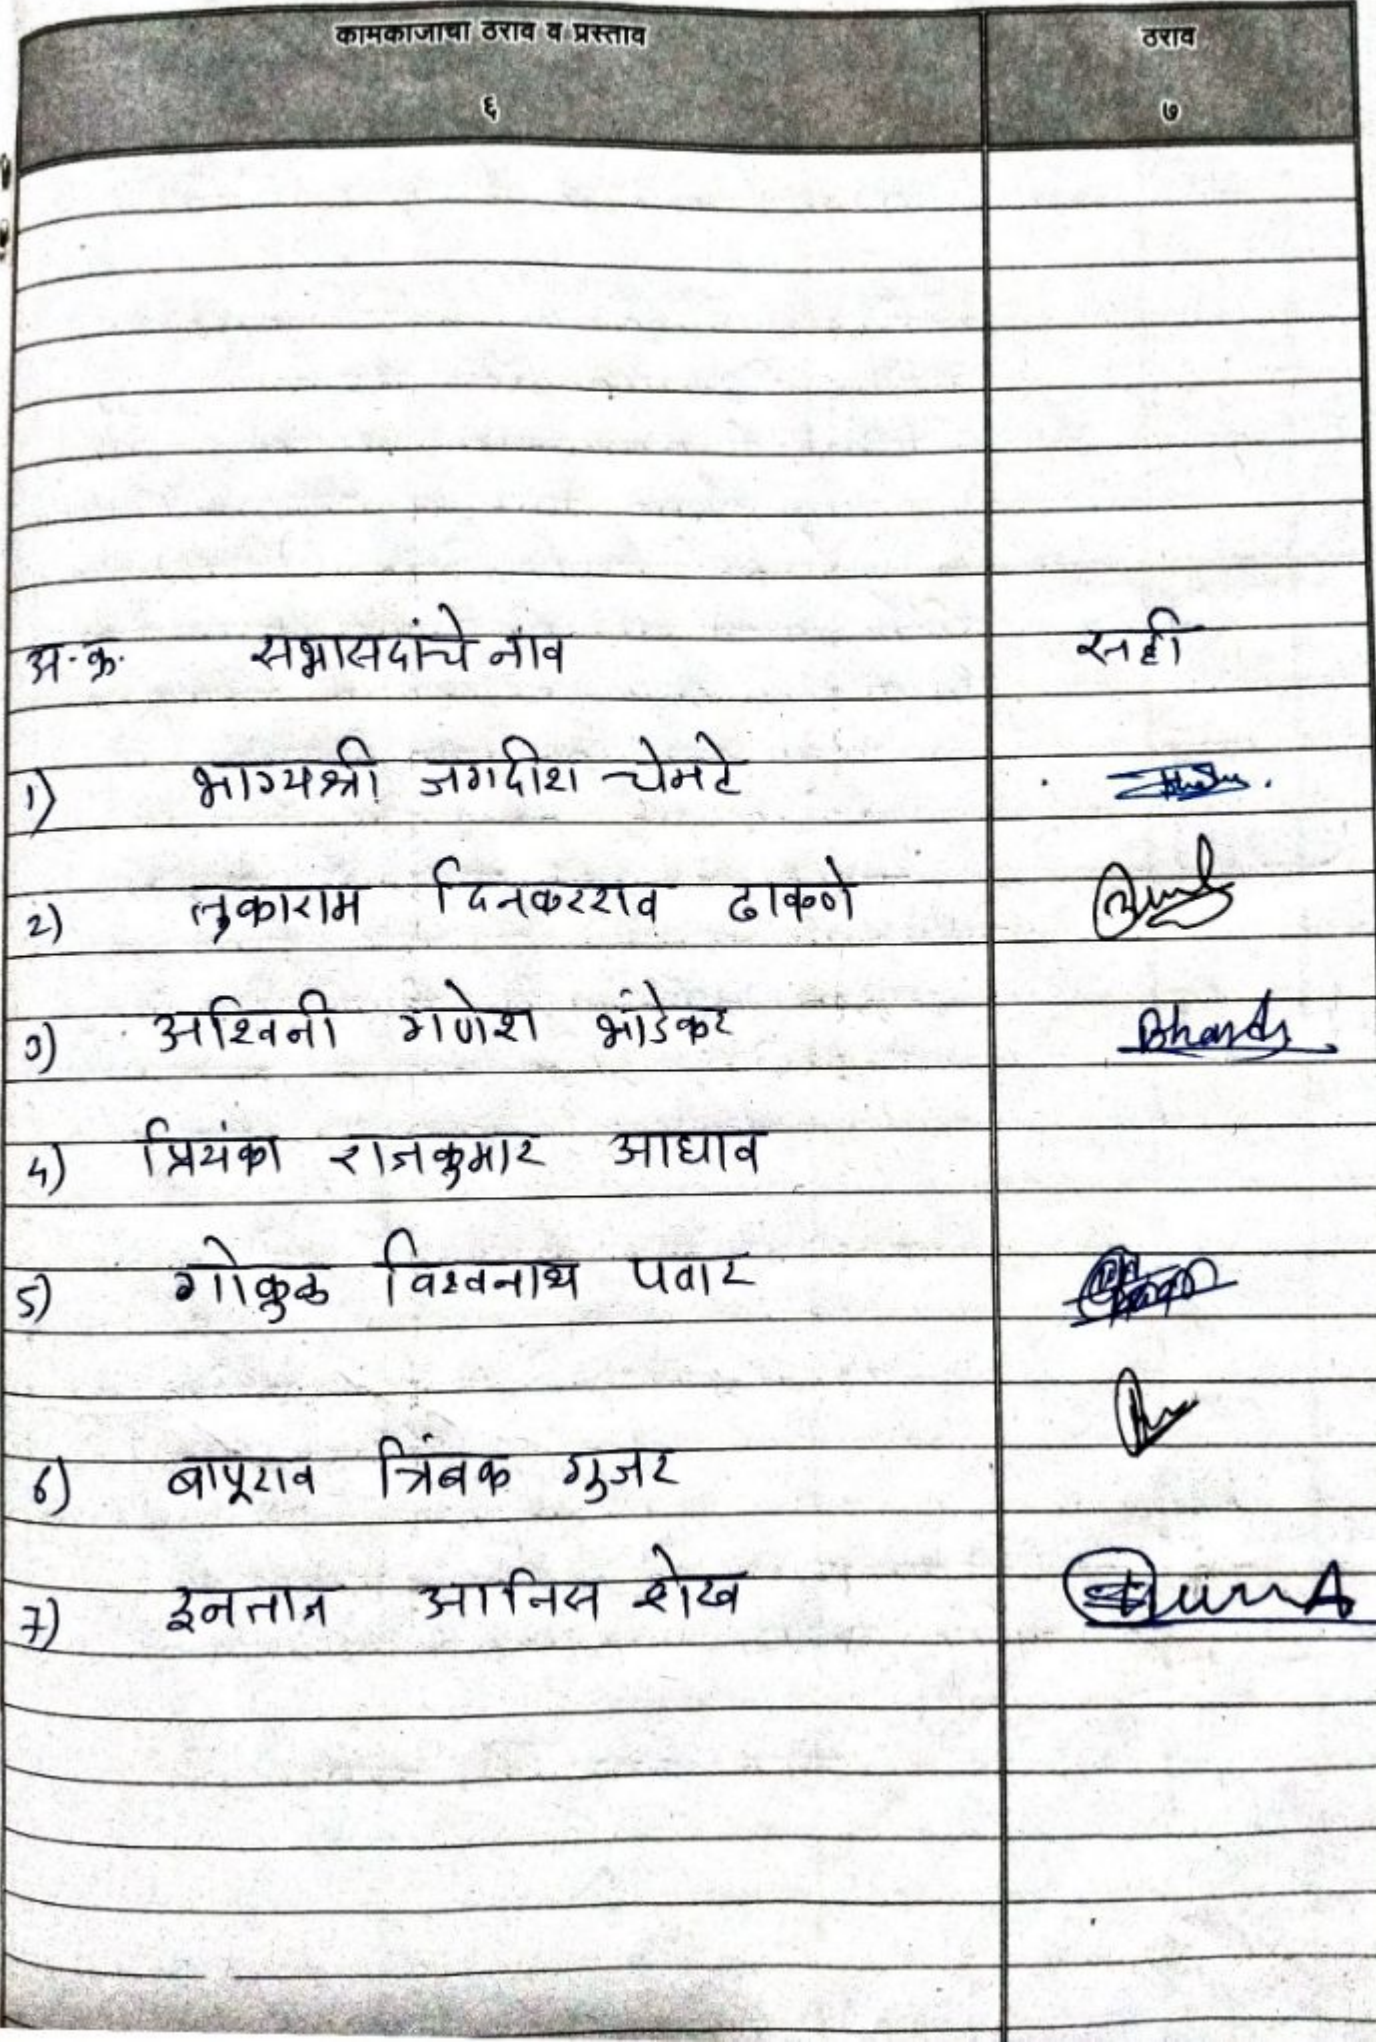 कामकाजाचा ठराव व प्रस्ताव ठराव
६ ७
अ.क्र. सभासदांचे नाव सही
1) भाग्यश्री जगदीश चेमटे
2) तुकाराम दिनकरराव ढाकणे
3) अश्विनी गणेश भांडेकर Bhands
4) प्रियंका राजकुमार आघाव
5) गोकुळ विश्वनाथ पवार
6) बापूराव त्रिंबक गुजर
7) इनताज आनिस शेख